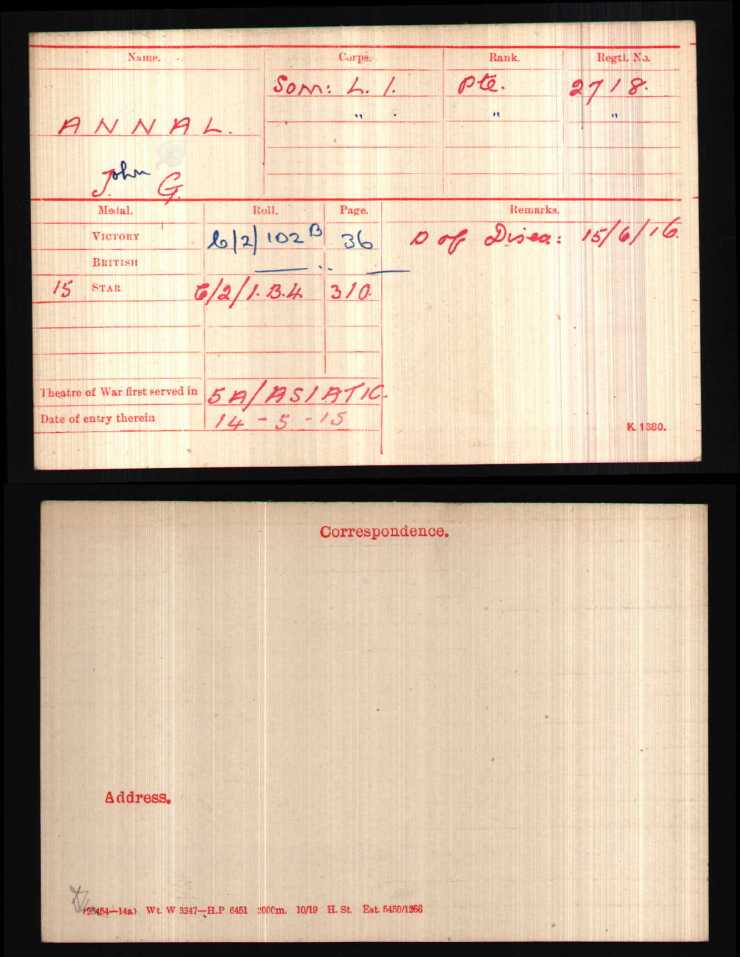 Name. Corps. Rank. Regtl. No.
Som: L. I. Pte. 2718.
ANNAL. " " "
John G.
Medal. Roll. Page. Remarks.
VICTORY C/2/102 B 36 D of Disea: 15/6/16.
BRITISH —— " ——
15 STAR C/2/1.B.4 310.
Theatre of War first served in 5A/ASIATIC.
Date of entry therein 14-5-15
K. 1380.
Correspondence.
Address.
Wt. W 3347—H.P 6451 2000m. 10/19 H. St. Est. 5450/1266